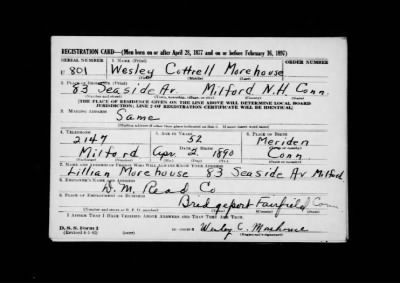 REGISTRATION CARD—(Men born on or after April 28, 1877 and on or before February 16, 1897)
SERIAL NUMBER 1. NAME (Print) ORDER NUMBER
U 801 Wesley Cottrell Morehouse
(First) (Middle) (Last)
2. PLACE OF RESIDENCE (Print)
83 Seaside Av. Milford N.H. Conn.
(Number and street) (Town, township, village, or city) (County) (State)
[THE PLACE OF RESIDENCE GIVEN ON THE LINE ABOVE WILL DETERMINE LOCAL BOARD
JURISDICTION; LINE 2 OF REGISTRATION CERTIFICATE WILL BE IDENTICAL]
3. MAILING ADDRESS
Same
(Mailing address if other than place indicated on line 2. If same insert word same)
4. TELEPHONE 5. AGE IN YEARS 6. PLACE OF BIRTH
2147 52 Meriden
DATE OF BIRTH (Town or county)
Milford Apr. 2 1890 Conn
(Exchange) (Number) (Mo.) (Day) (Yr.) (State or country)
7. NAME AND ADDRESS OF PERSON WHO WILL ALWAYS KNOW YOUR ADDRESS
Lillian Morehouse 83 Seaside Av Milford
8. EMPLOYER'S NAME AND ADDRESS
D. M. Read Co
9. PLACE OF EMPLOYMENT OR BUSINESS
Bridgeport Fairfield Conn
(Number and street or R. F. D. number) (Town) (County) (State)
I AFFIRM THAT I HAVE VERIFIED ABOVE ANSWERS AND THAT THEY ARE TRUE.
D. S. S. Form 1
(Revised 4-1-42) Wesley C. Morehouse
(Registrant's signature)